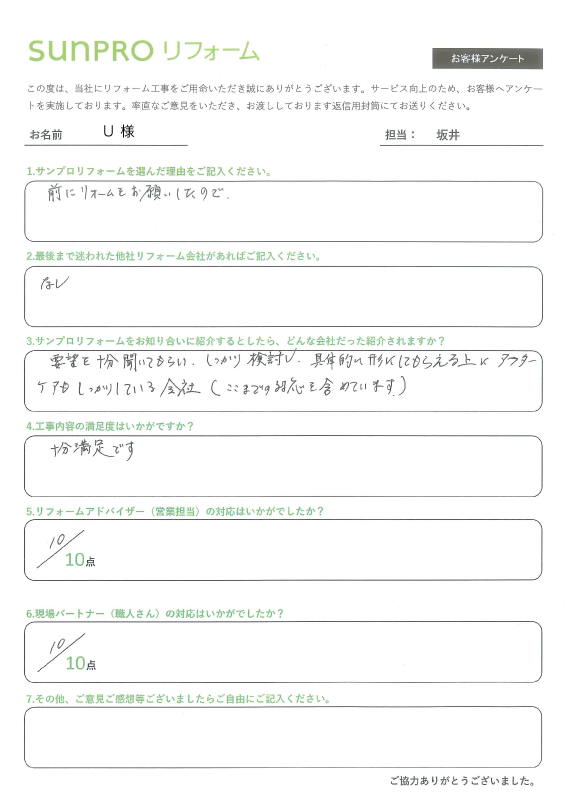 sunpro リフォーム
お客様アンケート
この度は、当社にリフォーム工事をご用命いただき誠にありがとうございます。サービス向上のため、お客様へアンケー
トを実施しております。率直なご意見をいただき、お渡ししております返信用封筒にてお送りください。
お名前 U 様 担当： 坂井
1.サンプロリフォームを選んだ理由をご記入ください。
前にリォームをお願いしたので.
2.最後まで迷われた他社リフォーム会社があればご記入ください。
なし
3.サンプロリフォームをお知り合いに紹介するとしたら、どんな会社だった紹介されますか？
要望を十分聞いてもらい、しっかり検討し、具体的に形にしてもらえる上に アフター
ケアもしっかりしている会社（ここまでの対応も含めています）
4.工事内容の満足度はいかがですか？
十分満足です
5.リフォームアドバイザー（営業担当）の対応はいかがでしたか？
10/10点
6.現場パートナー（職人さん）の対応はいかがでしたか？
10/10点
7.その他、ご意見ご感想等ございましたらご自由にご記入ください。
ご協力ありがとうございました。